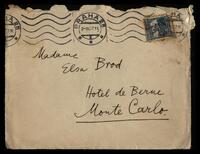 PRAHA 25
PRAHA 25
Madame
Elsa Brod
Hotel de Berne
Monte Carlo.